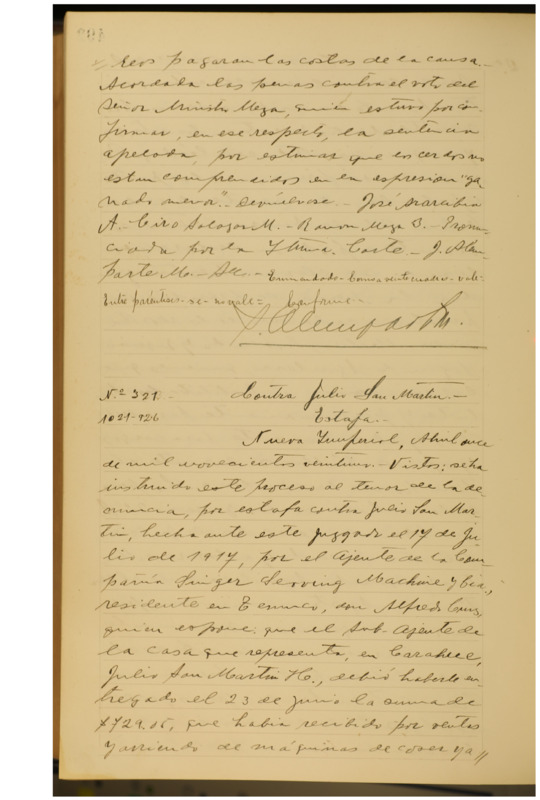 Reos pagaran las costas de la causa.-
Acordada las penas contra el voto del
Señor Ministro Meza, quien estuvo por con-
firmar, en ese respecto, la sentencia
apelada, por estimar que los cerdos no
estan comprendidos en la espresion "ga-
nado menor".- Devuélvase.- José
A. Ciro Salazar M.- Ramon Meza B.- Pronun-
ciada por la Iltma. Corte.- J. Alem-
parte Mo.- Sec.- Enmendado- vale-
Entre paréntesis- se- no vale= Conforme-
J. Alemparte M.
N.º 321.- Contra Julio San Martin.-
1021-926 Estafa.-
Nueva Imperial, Abril once
de mil novecientos veintiuno.- Vistos: se ha
instruido este proceso al tenor de la de-
nuncia, por estafa contra Julio San Mar-
tin, hecha ante este juzgado el 17 de Ju-
lio de 1917, por el Ajente de la Com-
pañia Singer Serving Machine y Cia.,
residente en Temuco, don Alfredo Cruz,
quien espone: que el Sub-Ajente de
la casa que representa, en Carahue,
Julio San Martin H., debió haberle en-
tregado el 23 de junio la suma de
$729.05, que habia recibido por ventas
y arriendo de máquinas de coser ya//